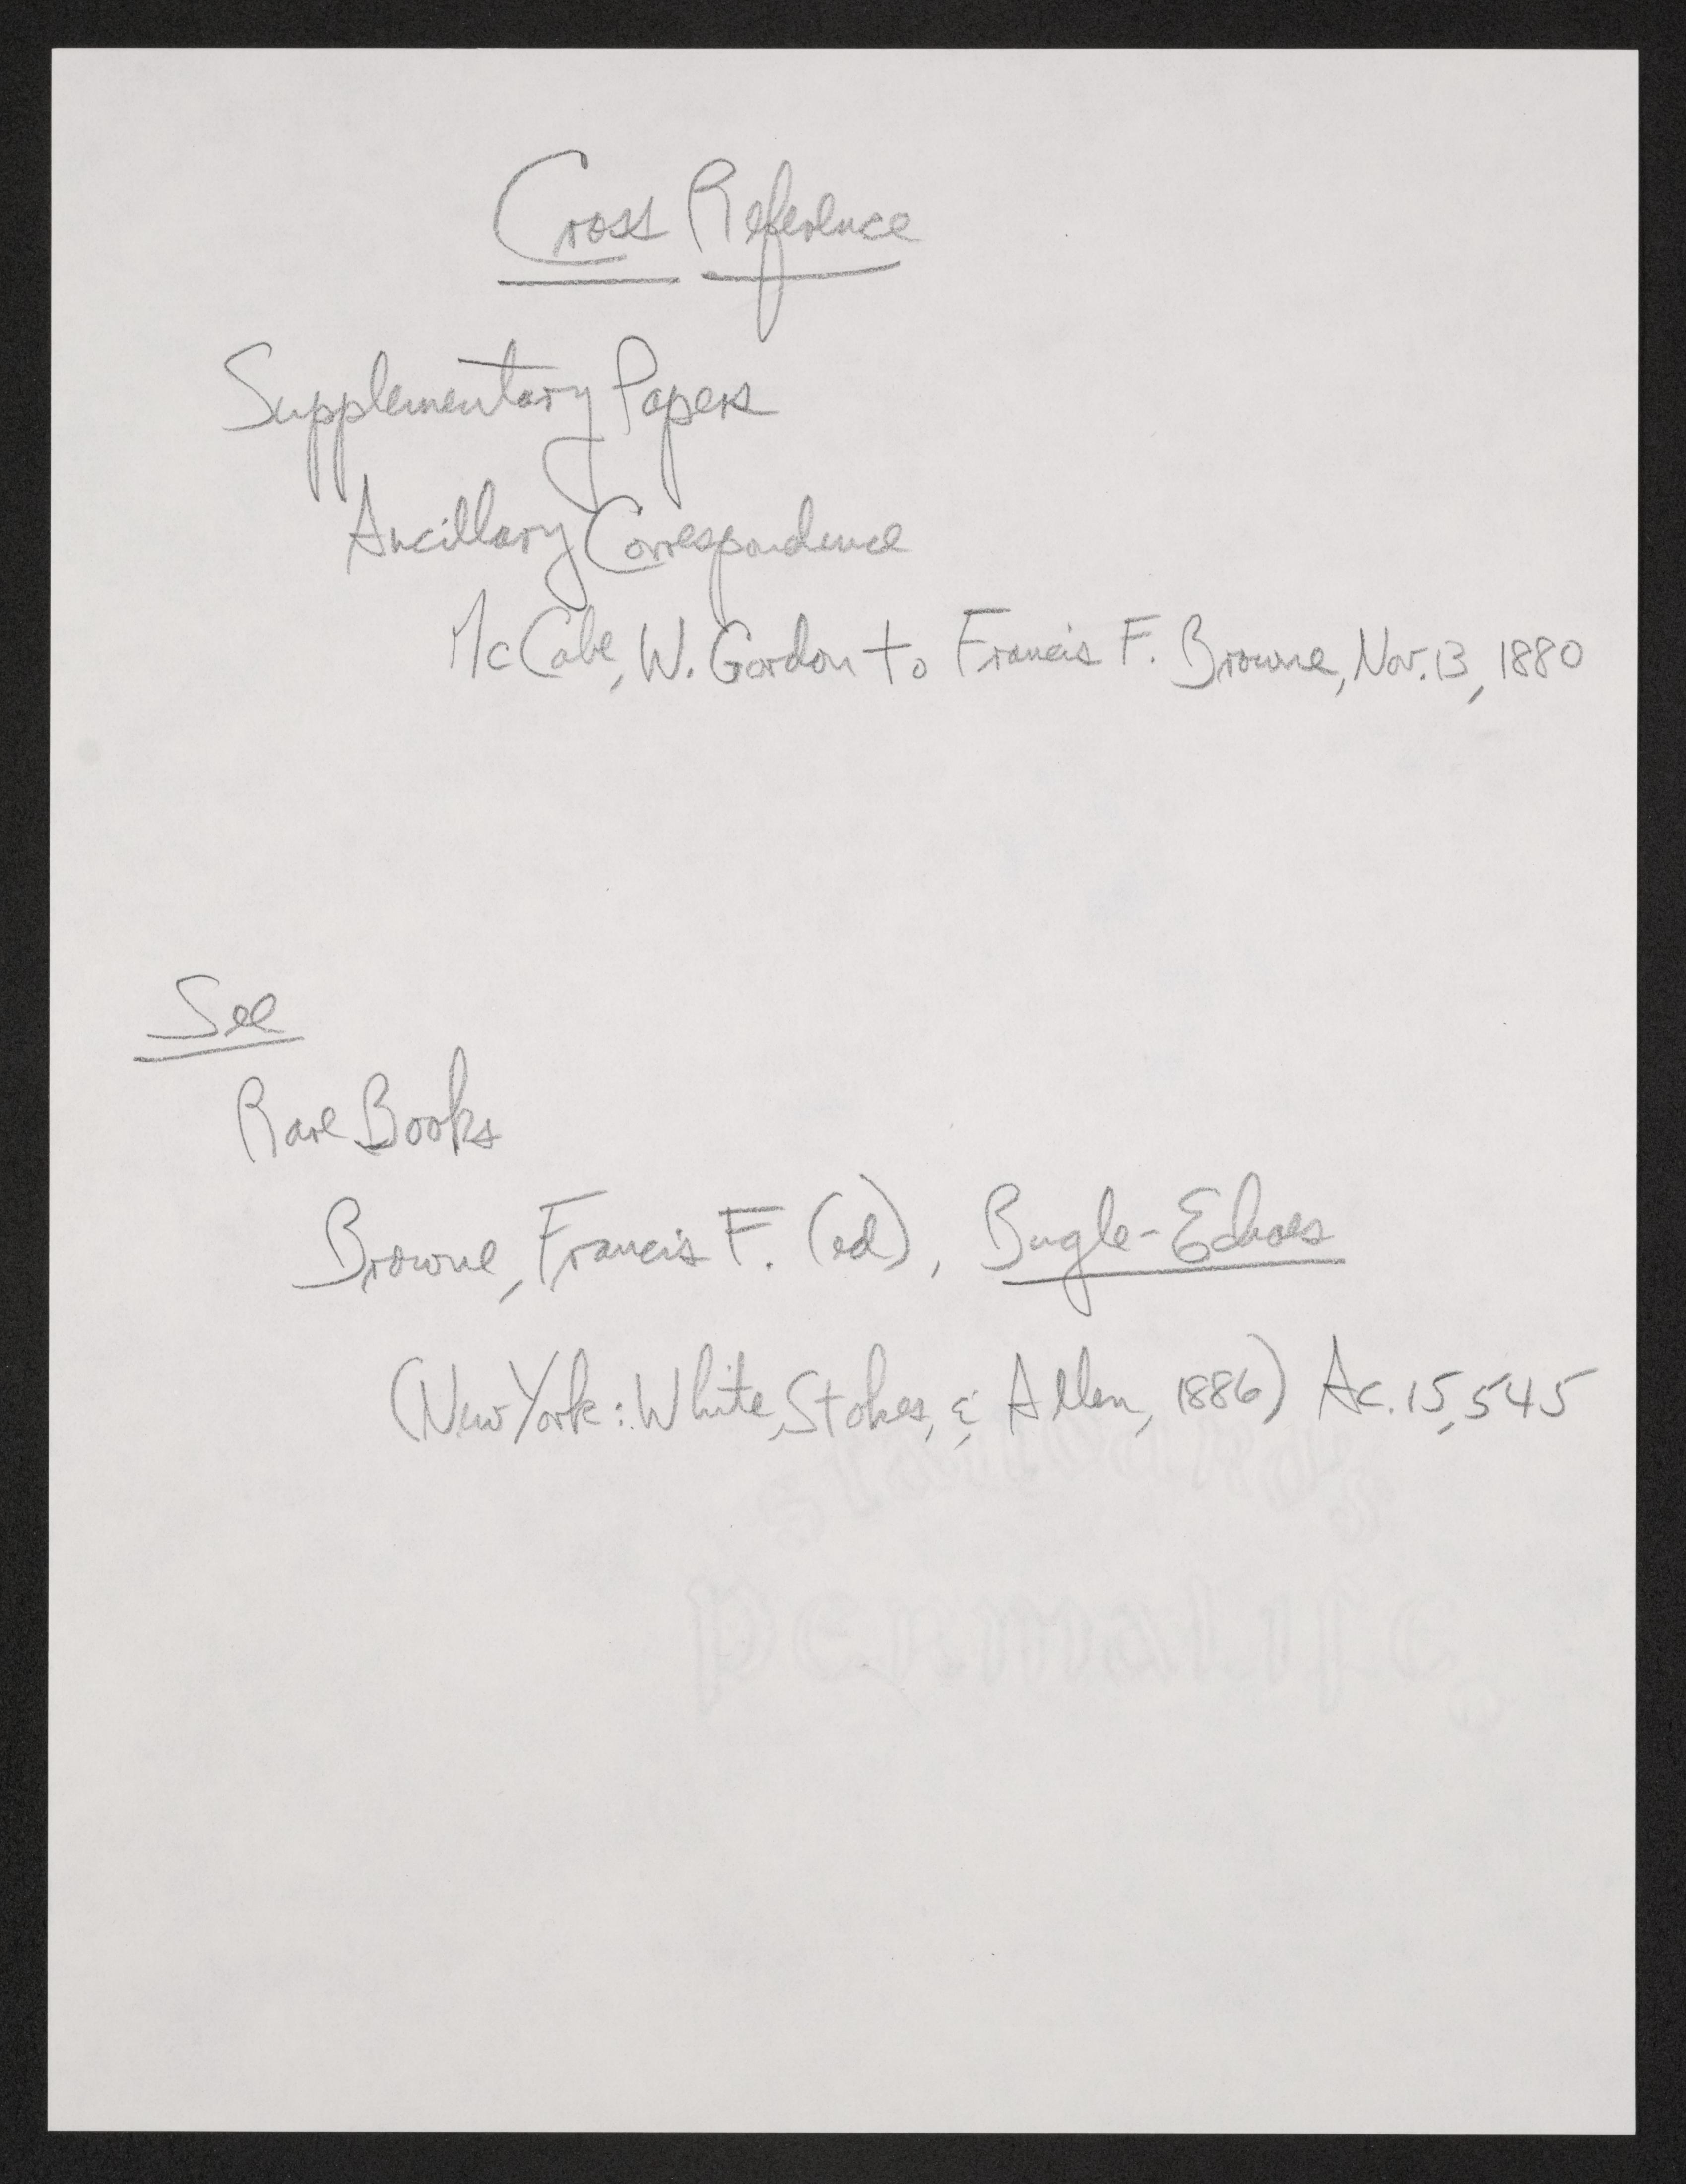 Cross Reference
Supplementary Papers
Ancillary Correspondence
McCabe, W. Gordon to Francis F. Browne, Nov. 13, 1880
See
Rare Books
Browne, Francis F. (ed), Bugle-Echoes
(New York: White, Stokes, & Allen, 1886) Ac. 15,545